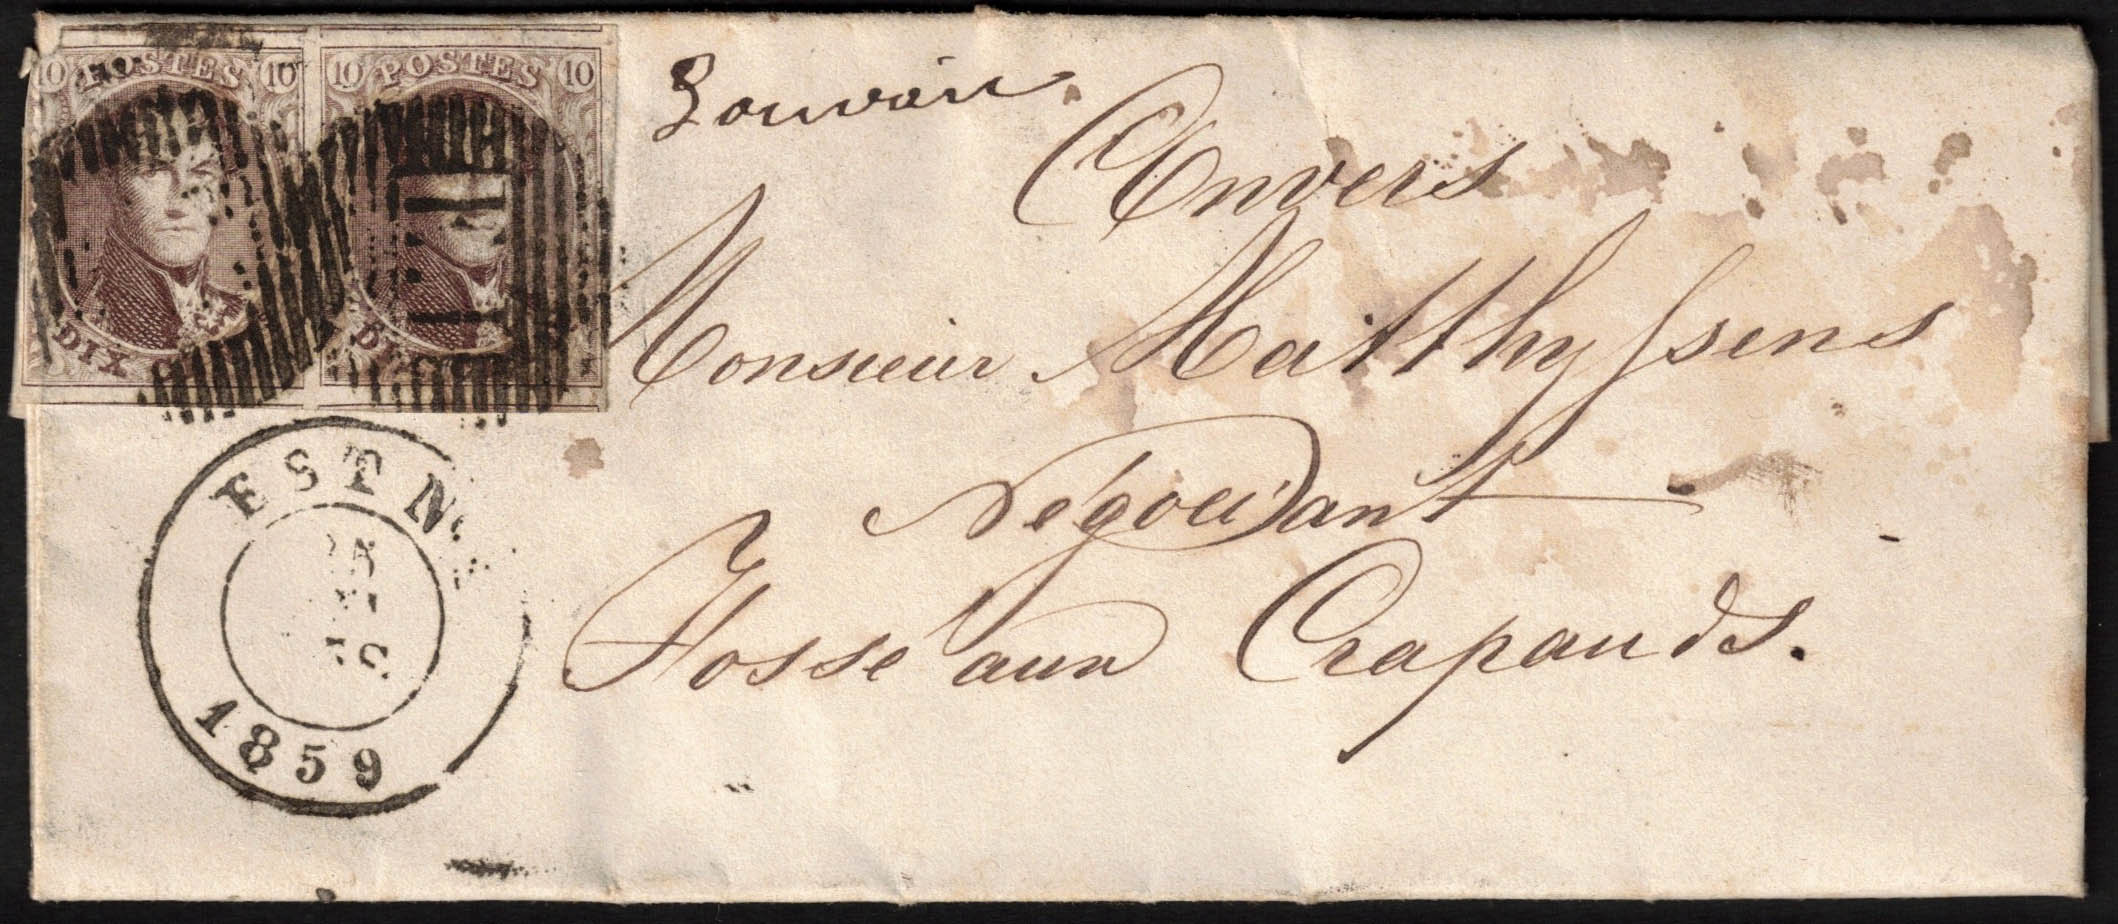 10 POSTES 10 10 POSTES 10
Louvain
Anvers
Monsieur Matthyssens
DIX
Négociant
EST N°
Fosse aux Crapauds.
1859